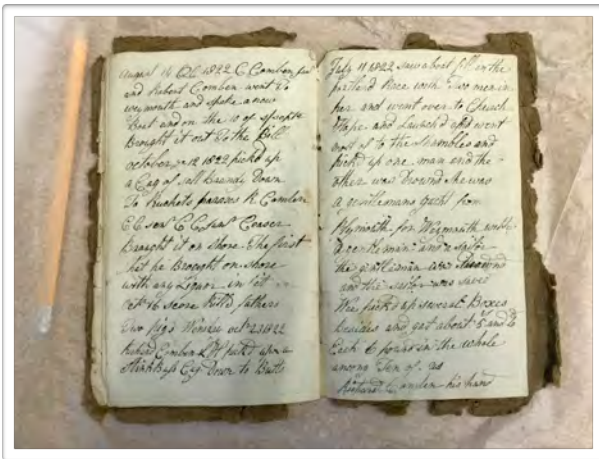 August 14 1822 C Comben
and Robert Comben went to
weymouth and spake a new
boat and on the 10 of
Brought it out to the Bill
october 12 1822 picked up
a Cag of Brandy Down
To R Comben
C C sen C C
Brought it on shore the first
that he Brought on shore
with any Liquor in it
16 score fathers
two pigs 1822
Richard Comben picked up a
Cag Down to
July 11 1822 saw a boat fill in the
portland Race with Two men in
her and went over to Church
Hope and Launch'd and went
of to the Shambles and
picked up one man and the
other was Drownd She was
a gentlemans yacht from
Plymouth for Weymouth with
a gentleman and a sailor
the gentleman was
and the sailor was saved
Wee picked up several Boxes
Besides and got about 5 and 6
Each 6 pound in the whole
among Ten of us
Comben his hand